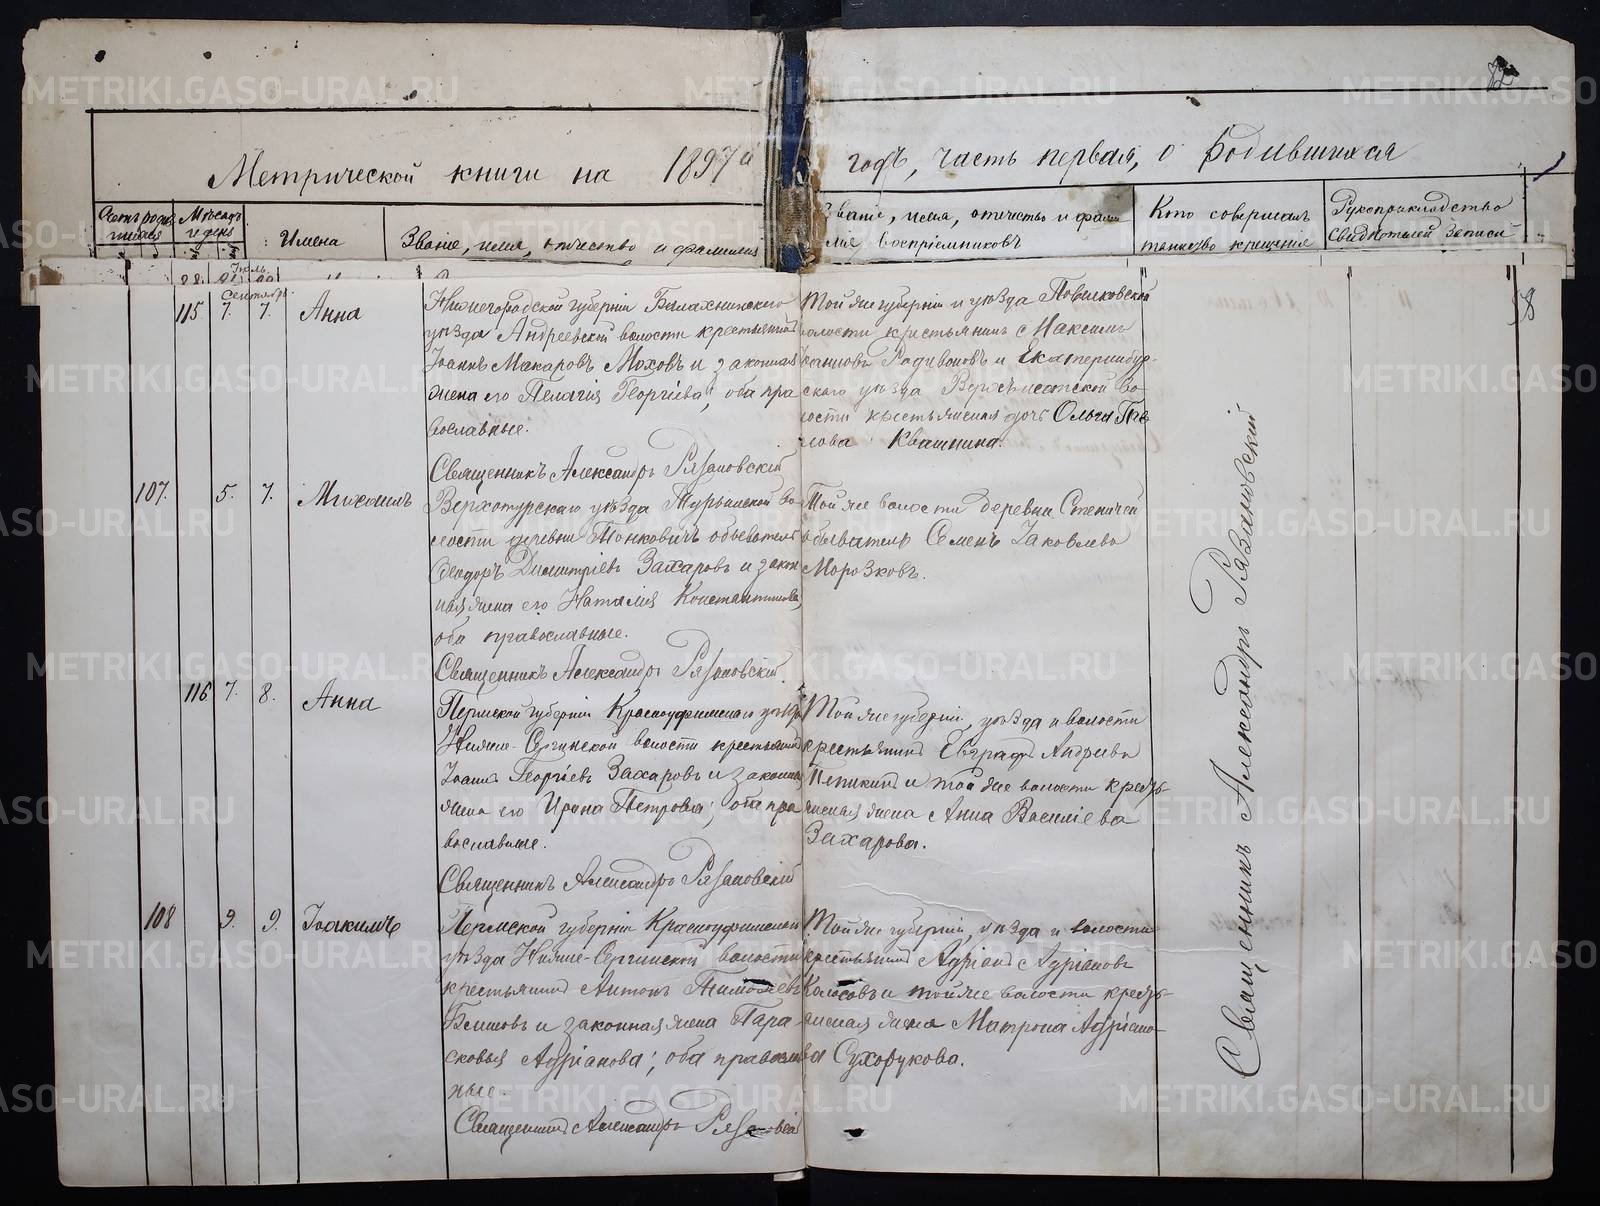 82
Метрической книги на 1897й годъ, часть первая, о Родившихся
Мѣсяцъ и день
Имена
Званіе, имя, отчество и фамилія
Званіе, имя, отчество и фами
лія воспріемниковъ
Кто совершалъ
таинство крещенія
Рукоприкладство
свидѣтелей записи
58
Сентябрь
115. 7. 7. Анна
Нижегородской губерніи Балахнинскаго
уѣзда Андреевской волости крестьянинъ
Іоаннъ Макаровъ Моховъ и законная
жена его Пелагія Георгіева, оба пра
вославные.
Священникъ Александръ Рязановскій
Той же губерніи и уѣзда
волости крестьянинъ Максимъ
Родивоновъ и Екатеринбур-
скаго уѣзда во-
лости крестьянская дочь Ольга Пав
лова Квашнина.
107. 5. 7. Михаилъ
Верхотурскаго уѣзда Турьинской во-
лости деревни обыватель
Ѳеодоръ Димитріевъ Захаровъ и закон
ная жена его Наталія Константинова,
оба православные.
Священникъ Александръ Рязановскій.
Той же волости деревни
обыватель Семенъ Іаковлевъ
Морозковъ.
116 7. 8. Анна
Пермской губерніи Красноуфимскаго уѣзда
Нижне-Сергинской волости крестьянинъ
Іоаннъ Георгіевъ Захаровъ и законная
жена его Ирина Петрова; оба пра
вославные.
Священникъ Александръ Рязановскій
Той же губерніи, уѣзда и волости
крестьянинъ Евграфъ Андреевъ
и той же волости кресть-
янская жена Анна Василіева
Захарова.
108 9. 9. Іоакимъ
Пермской губерніи Красноуфимскаго
уѣзда Нижне-Сергинской волости
крестьянинъ Антонъ Тимоѳеевъ
и законная жена Пара
сковья Адріанова; оба православ
ные.
Священникъ Александръ Рязановскій
Той же губерніи, уѣзда и волости
крестьянинъ Адріанъ Адріановъ
Колосовъ и той же волости кресть-
янская жена Матрона Адріано-
ва Сухорукова.
Священникъ Александръ Рязановскій
METRIKI.GASO-URAL.RU